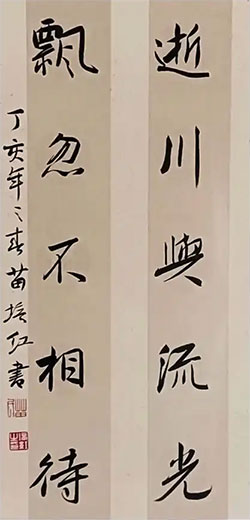 逝川與流光
飄忽不相待
丁亥年之春苗培红書